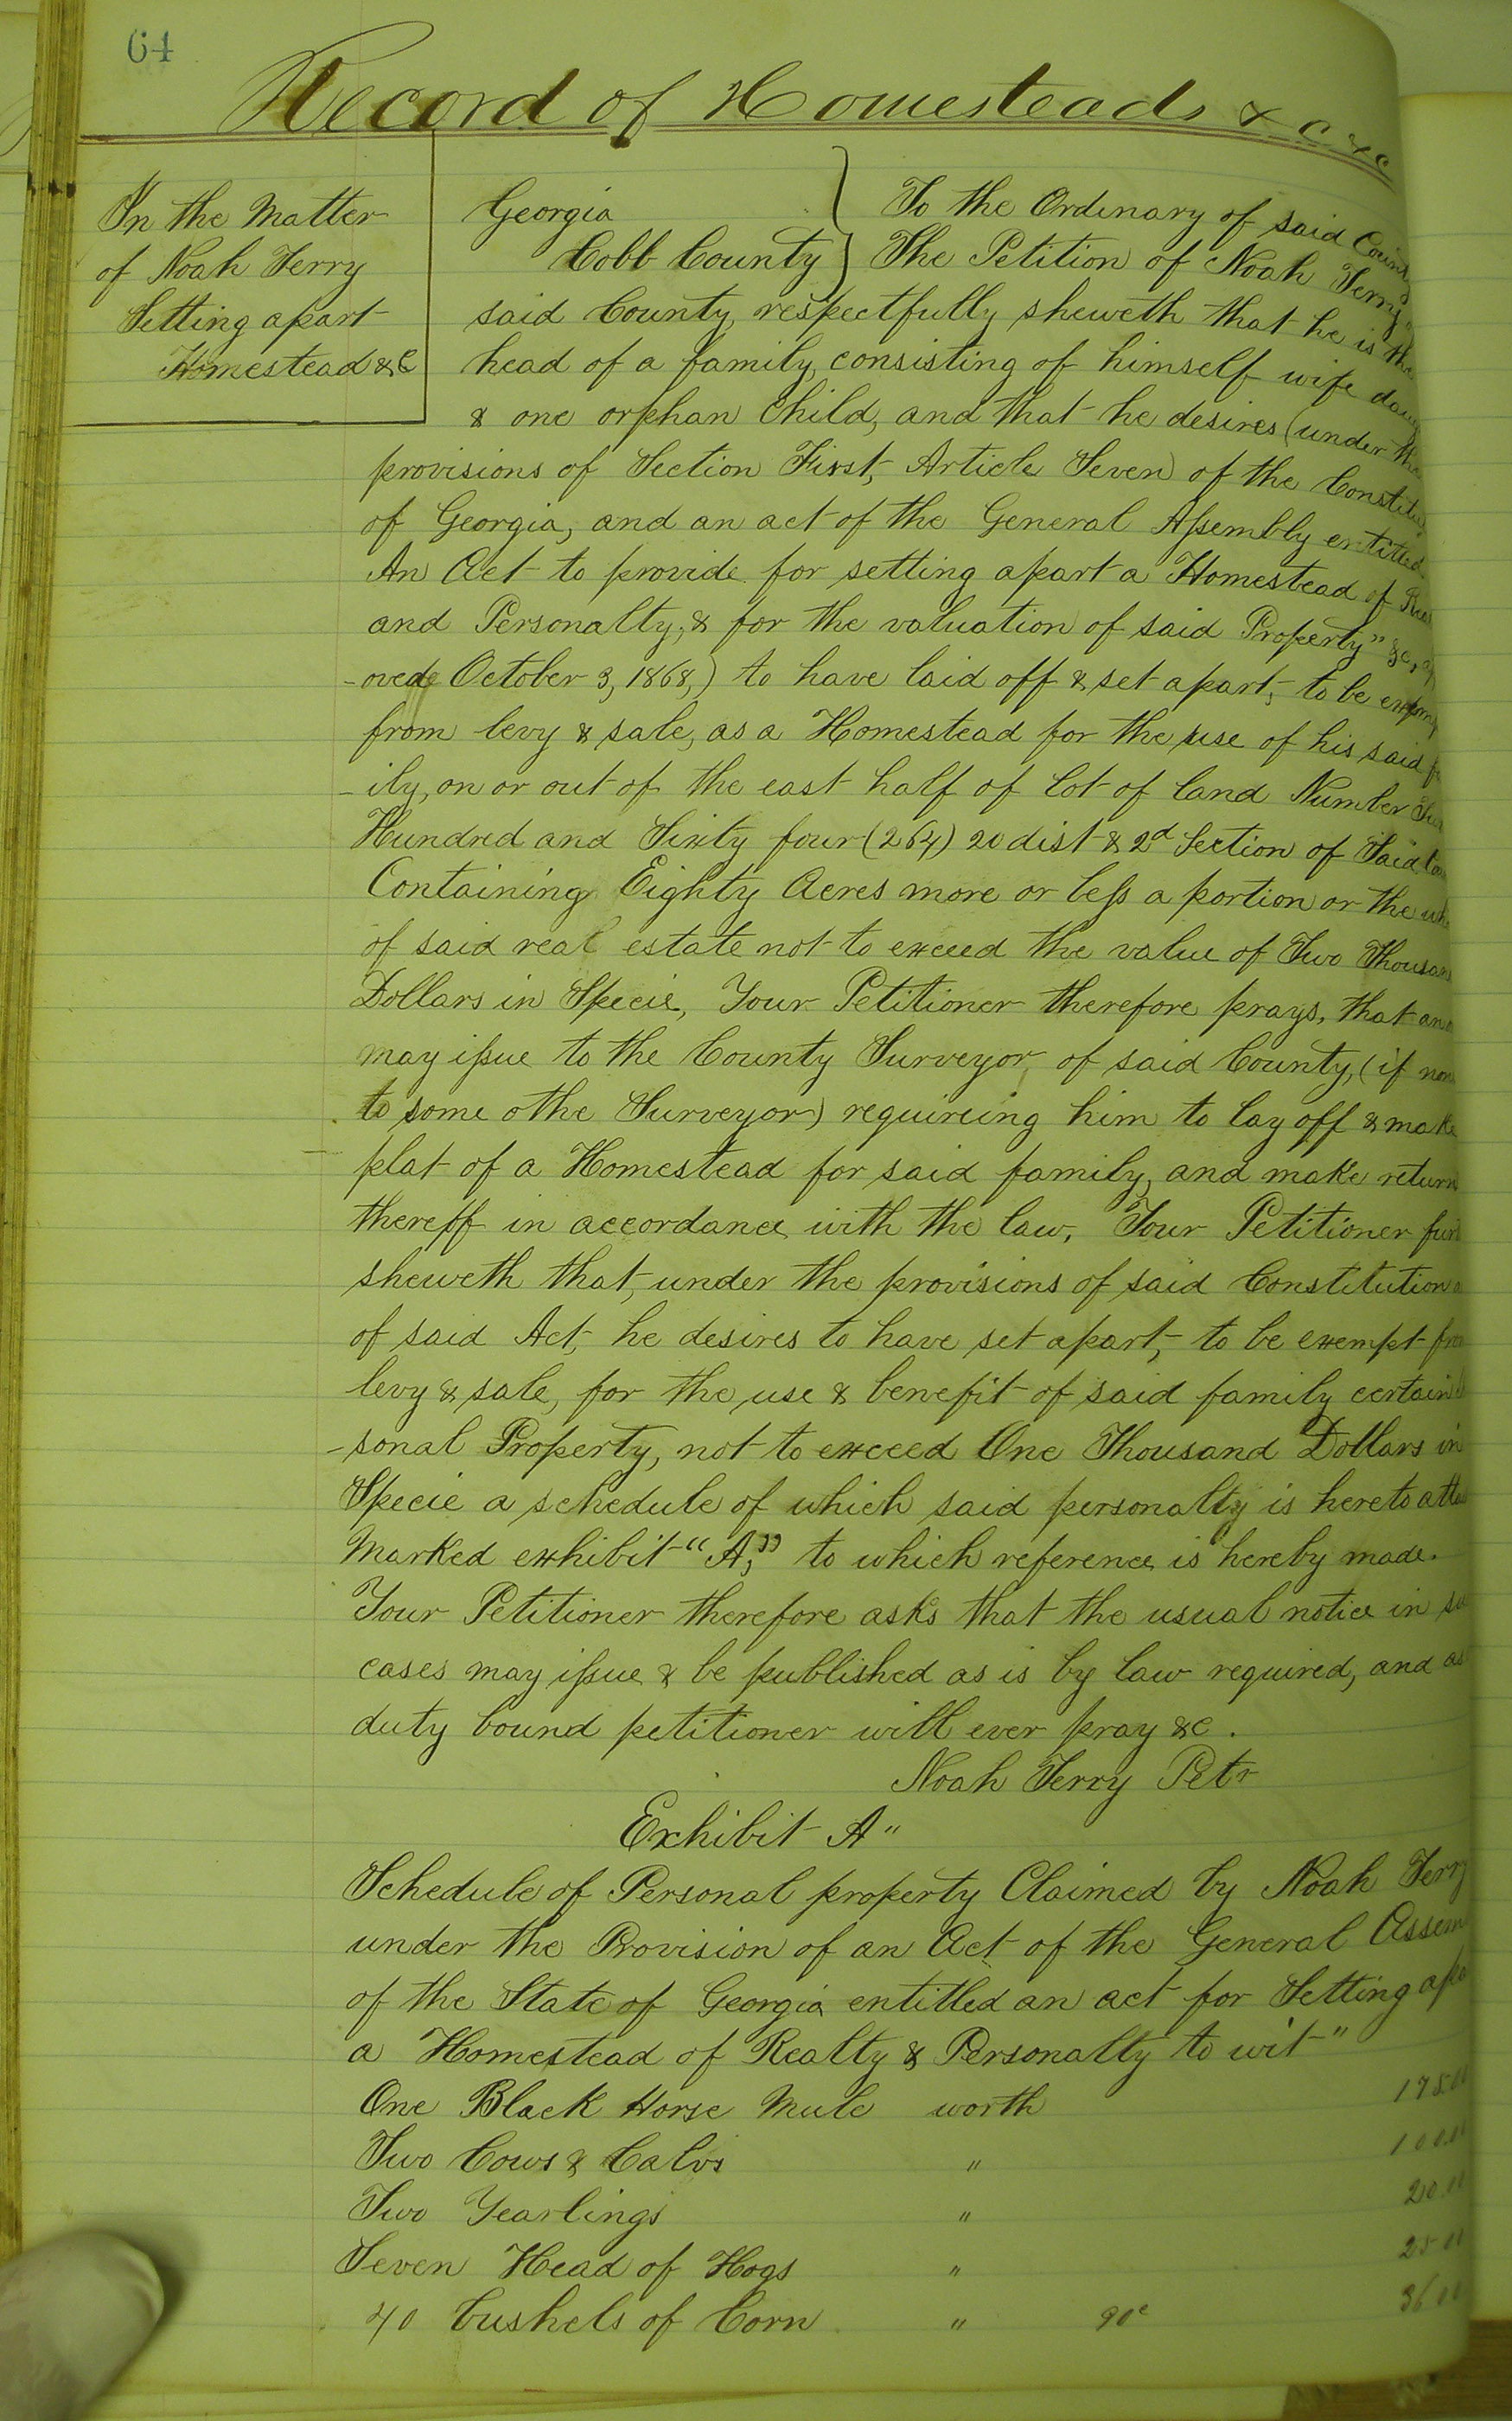 64
Record of Homesteads &c &c
In the Matter
of Noah Terry
Setting apart
Homestead &C
Georgia
Cobb County
To the Ordinary of said
The Petition of Noah Terry
said County, respectfully sheweth that he is the
head of a family, consisting of himself wife
& one orphan child, and that he desires (under the
provisions of Section First, Article Seven) of the
of Georgia, and an act of the General Assembly entitled
An Act to provide for setting apart a Homestead of
and Personalty, & for the valuation of said Property" &c,
-oved October 3, 1868,) to have laid off & set apart, to be
from levy & sale, as a Homestead for the use of his said
-ily, on or out of the east half of lot of land Number
Hundred and Sixty four (264) 20 dist & 2d Section of Said
Containing Eighty Acres more or less a portion or the
of said real estate not to exceed the value of Two
Dollars in Specie, Your Petitioner therefore prays, that
may issue to the County Surveyor of said County, (if
to some othe Surveyor) requireing him to lay off & make
plat of a Homestead for said family, and make return
thereff in accordance with the law, Your Petitioner
sheweth that, under the provisions of said Constitution
of said Act, he desires to have set apart, to be exempt
levy & sale, for the use & benefit of said family certain
-sonal Property, not to exceed One Thousand Dollars in
Specie a schedule of which said personalty is hereto
Marked exhibit "A," to which reference is hereby made.
Your Petitioner therefore asks that the usual notice in
cases may issue & be published as is by law required, and as
duty bound petitioner will ever pray &c.
Noah Terry Petr
Exhibit A"
Schedule of Personal property Claimed by Noah Terry
under the Provision of an Act of the General
of the State of Georgia entitled an act for Setting
a Homestead of Realty & Personalty to wit"
One Black Horse Mule worth 175.00
Two Cows & Calvs " 100.00
Two Yearlings " 20.00
Seven Head of Hogs " 25 00
40 bushels of Corn " 90c 36 00